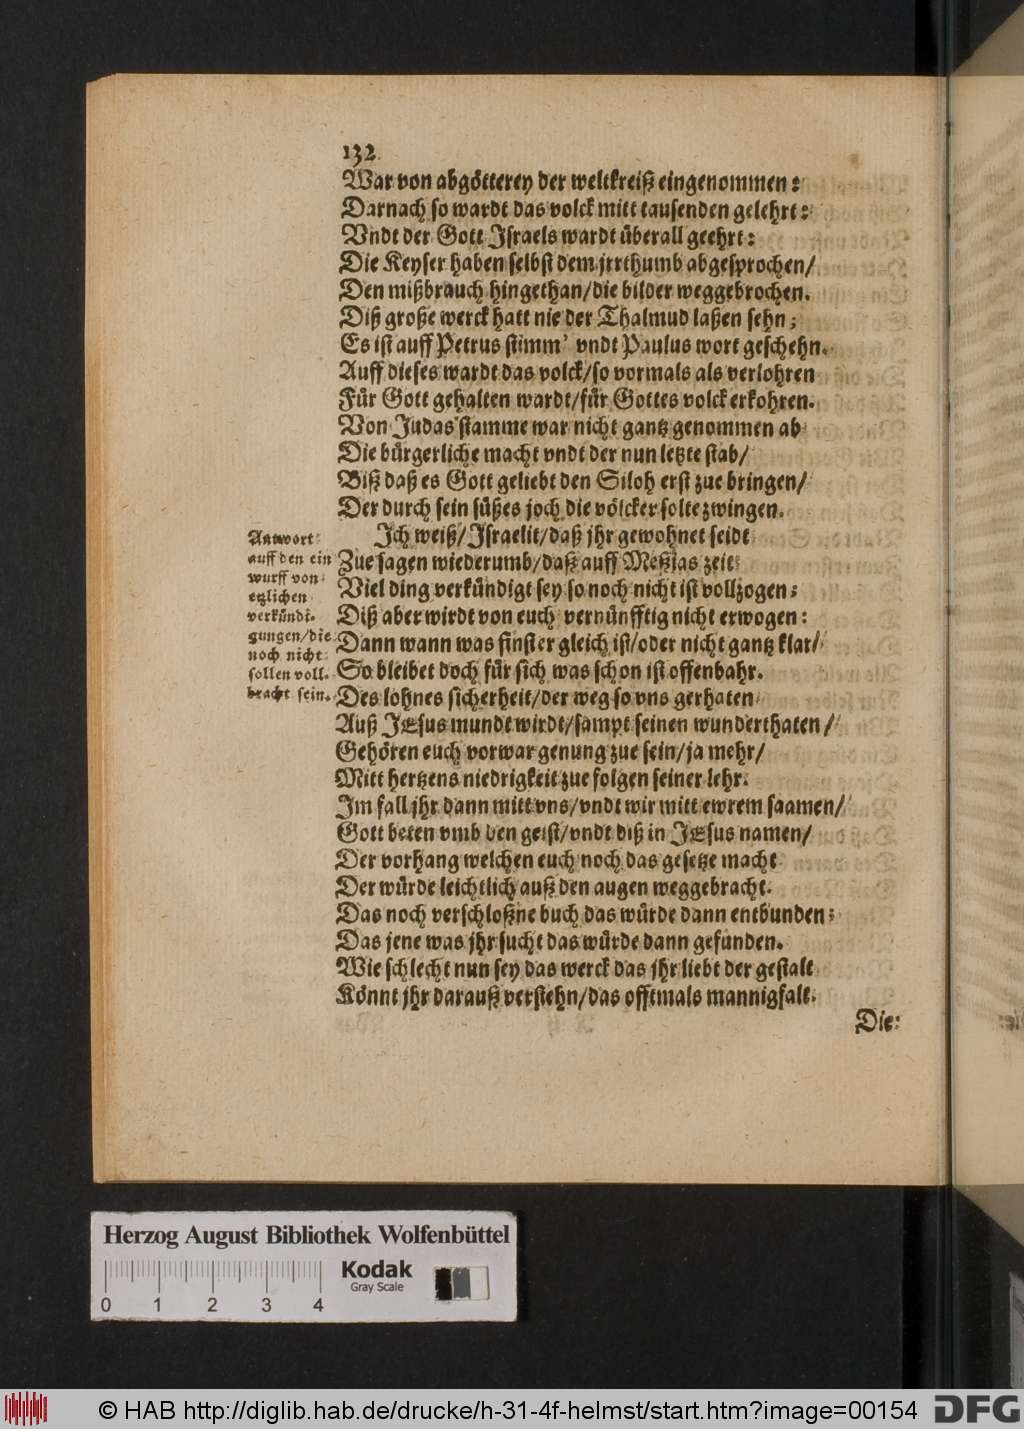 132
War von abgötterey der weltkreiß eingenommen:
Darnach so wardt das volck mitt tausenden gelehrt:
Vndt der Gott Jsraels wardt überall geehrt:
Die Keyser haben selbst dem jrrthumb abgesprochen/
Den mißbrauch hingethan/die bilder weggebrochen.
Diß große werck hatt nie der Thalmud laßen sehn;
Es ist auff Petrus stimm' vndt Paulus wort geschehn.
Auff dieses wardt das volck/so vormals als verlohren
Für Gott gehalten wardt/für Gottes volck erkohren.
Von Judas stamme war nicht gantz genommen ab
Die bürgerliche macht vndt der nun letzte stab/
Biß daß es Gott geliebt den Siloh erst zue bringen/
Der durch sein süßes joch die völcker solte zwingen.
Jch weiß/Jsraelit/daß jhr gewohnet seidt
Zue sagen wiederumb/daß auff Meßias zeit
Viel ding verkündigt sey so noch nicht ist vollzogen;
Diß aber wirdt von euch vernünfftig nicht erwogen:
Dann wann was finster gleich ist/oder nicht gantz klar/
So bleibet doch für sich was schon ist offenbahr.
Des lohnes sicherheit/der weg so vns gerhaten
Auß JEsus mundt wirdt/sampt seinen wunderthaten/
Gehören euch vorwar genung zue sein/ja mehr/
Mitt hertzens niedrigkeit zue folgen seiner lehr.
Jm fall jhr dann mitt vns/vndt wir mitt ewrem saamen/
Gott beten vmb den geist/vndt diß in JEsus namen/
Der vorhang welchen euch noch das gesetze macht
Der würde leichtlich auß den augen weggebracht.
Das noch verschloßne buch das würde dann entbunden;
Das jene was jhr sucht das würde dann gefunden.
Wie schlecht nun sey das werck das jhr liebt der gestalt
Könnt jhr darauß verstehn/das offtmals mannigfalt.
Die:
Antwort
auff den ein
wurff von
etzlichen
verkündi-
gungen/die
noch nicht
sollen voll-
bracht sein.
Herzog August Bibliothek Wolfenbüttel
Kodak
Gray Scale
0 1 2 3 4
© HAB http://diglib.hab.de/drucke/h-31-4f-helmst/start.htm?image=00154
DFG